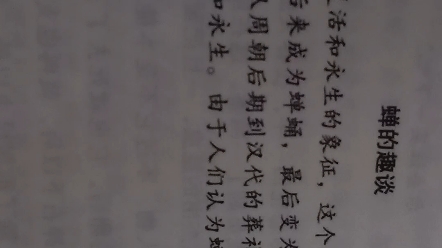 蝉的趣谈
活和永生的象征，这个
后来成为蝉蛹，最后变为
人周朝后期到汉代的葬礼
和永生。由于人们认为蝉